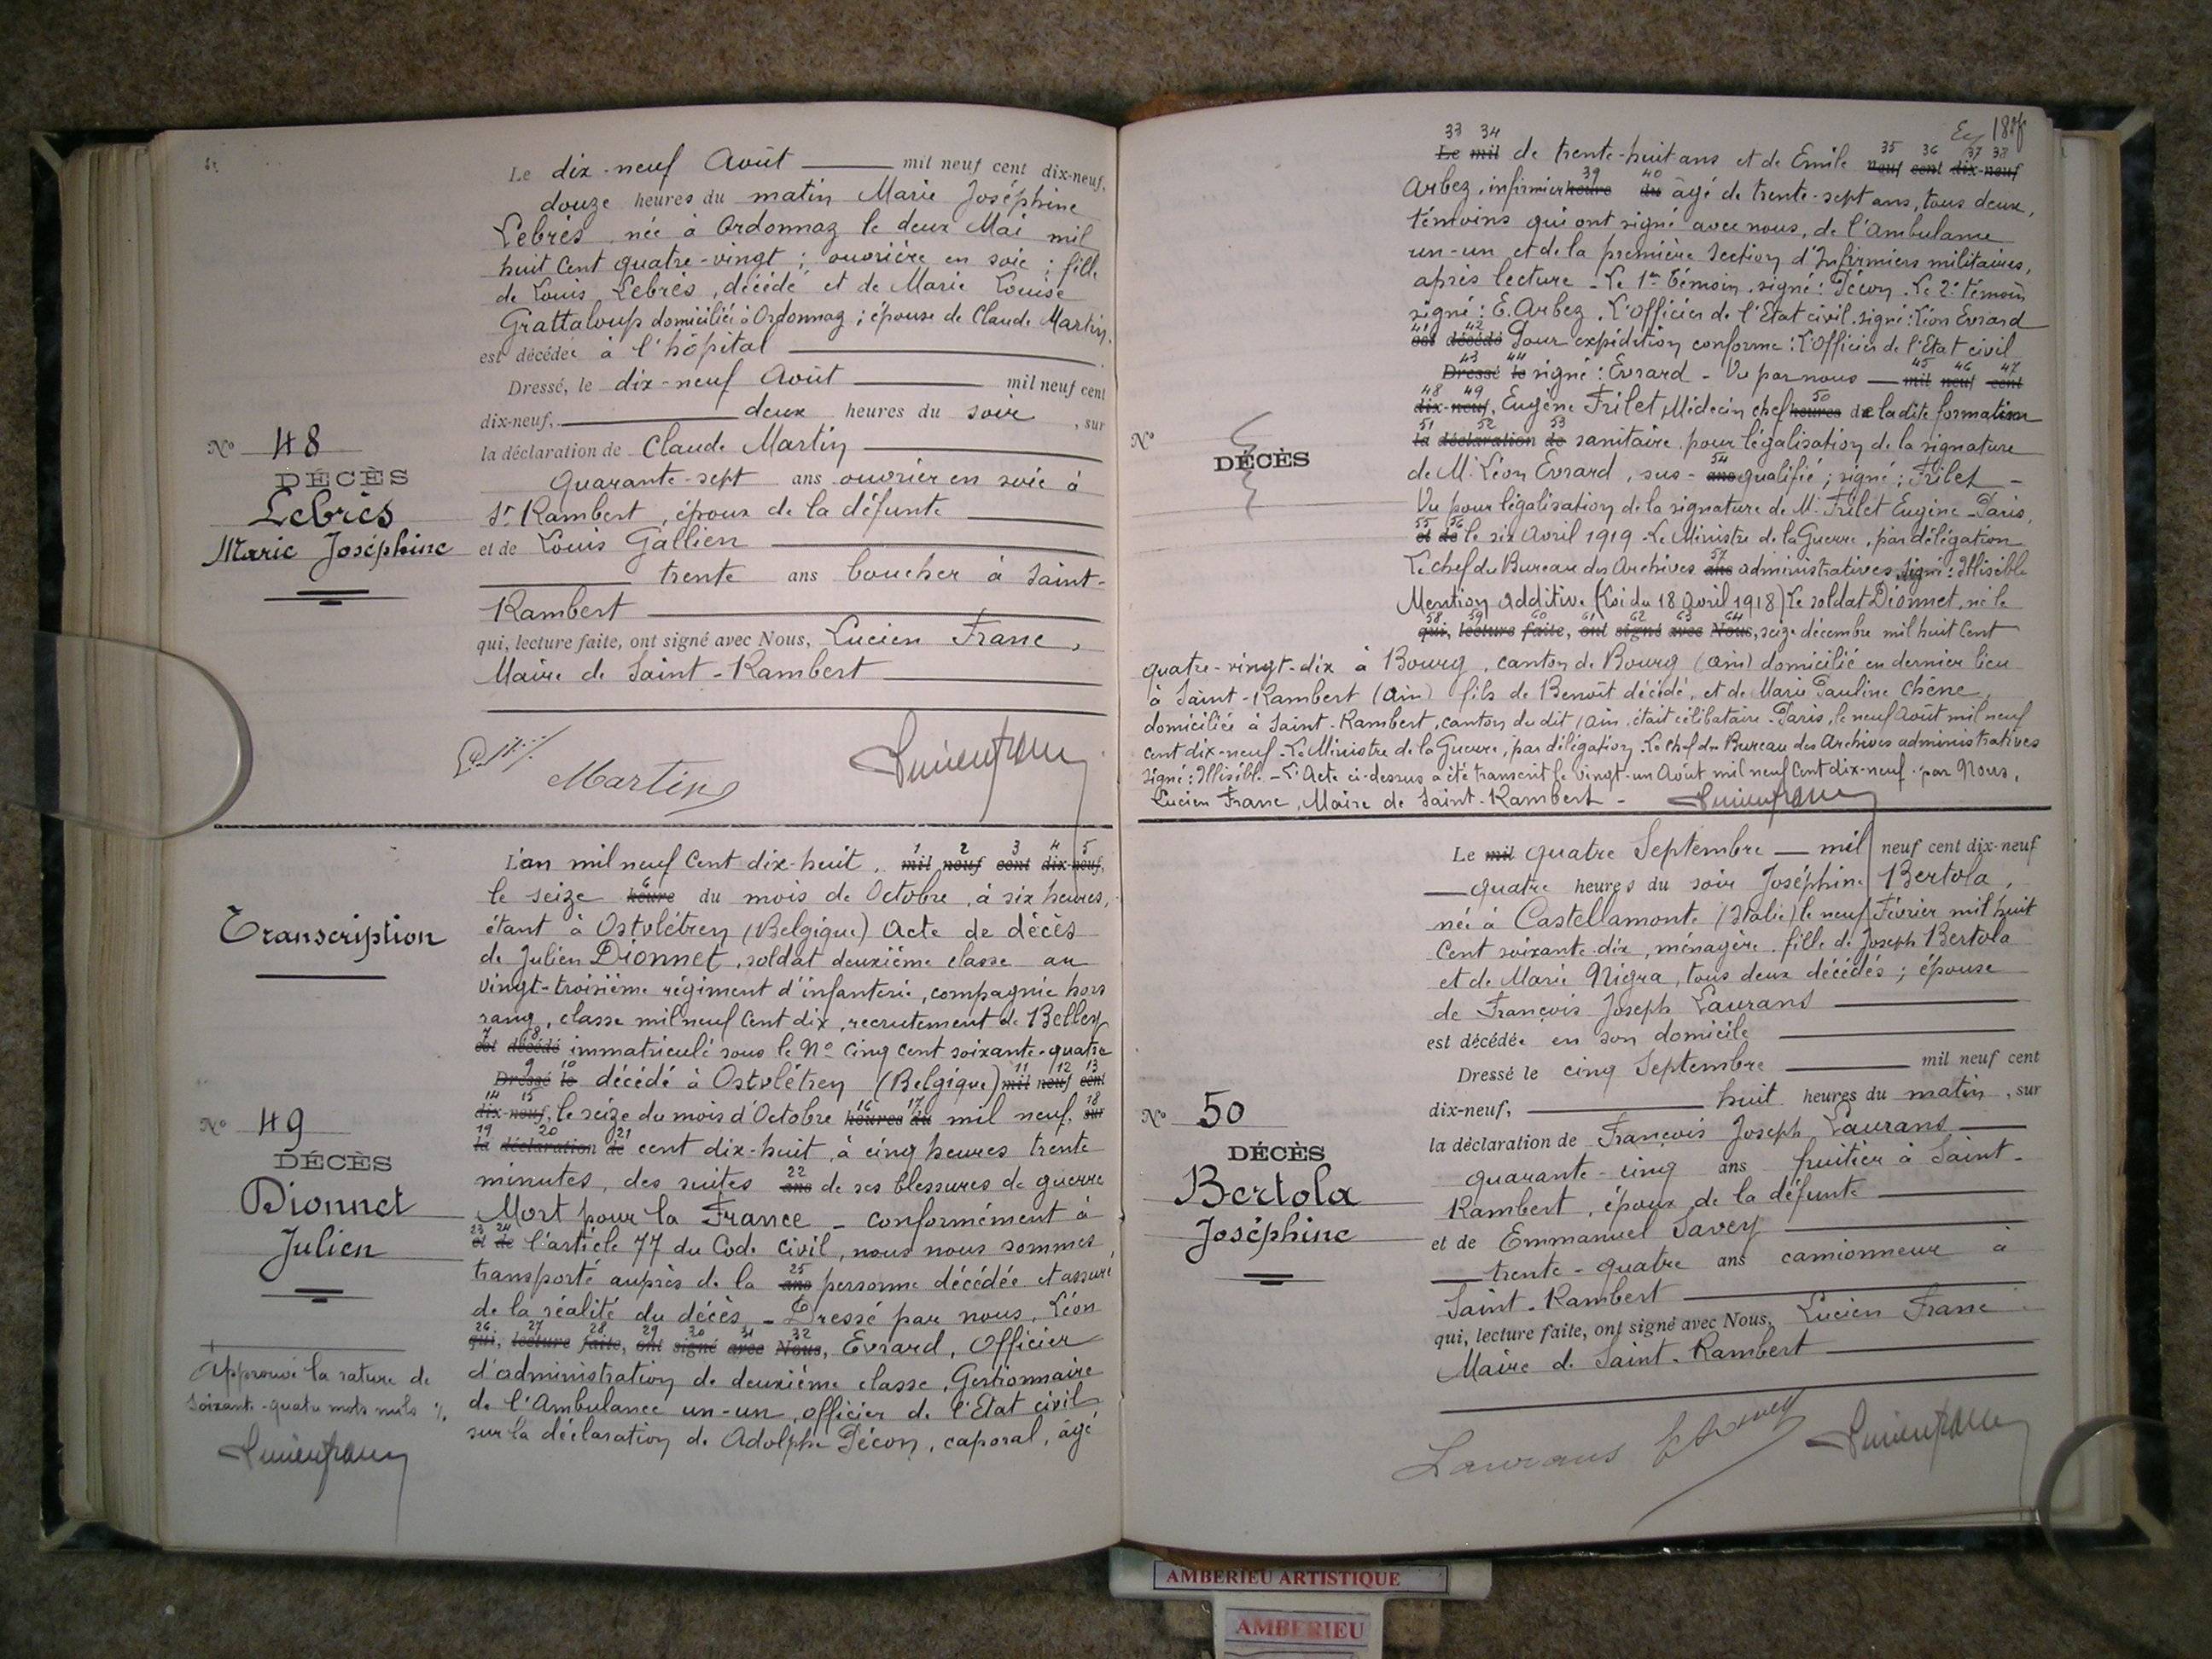 Le dix-neuf Août mil neuf cent dix-neuf,
douze heures du matin Marie Joséphine
Lebrès, née à Ordonnaz le deux Mai mil
huit cent quatre-vingt ; ouvrière en soie ; fille
de Louis Lebrès, décédé et de Marie Louise
Grattaloup domiciliée à Ordonnaz ; épouse de Claude Martin.
est décédée à l'hôpital
Dressé, le dix-neuf Août mil neuf cent
dix-neuf, deux heures du soir, sur
la déclaration de Claude Martin
Quarante-sept ans ouvrier en soie à
St Rambert, époux de la défunte
et de Louis Gallien
trente ans boucher à Saint-
Rambert
qui, lecture faite, ont signé avec Nous, Lucien Franc,
Maire de Saint-Rambert
No 48
DÉCÈS
Lebrès
Marie Joséphine
Martin
Lucien Franc
Transcription
No 49
DÉCÈS
Dionnet
Julien
Approuvé la rature de
soixante-quatre mots nuls
Lucien Franc
L'an mil neuf cent dix-huit, 1 mil 2 neuf 3 cent 4 dix- 5 neuf,
le seize 6 heure du mois de Octobre, à six heures,
étant à Ostvlétren (Belgique) Acte de décès
de Julien Dionnet, soldat deuxième classe au
vingt-troisième régiment d'infanterie, compagnie hors
rang, classe mil neuf cent dix, recrutement de Belley
7 est 8 décédé immatriculé sous le No cinq cent soixante-quatre
9 Dressé 10 le décédé à Ostvlétren (Belgique) 11 mil 12 neuf 13 cent
14 dix- 15 neuf, le seize du mois d'Octobre 16 heures 17 du mil neuf, 18 sur
19 la 20 déclaration 21 de cent dix-huit, à cinq heures trente
minutes, des suites 22 ans de ses blessures de guerre
Mort pour la France - conformément à
23 et 24 de l'article 77 du Code civil, nous nous sommes
transporté auprès de la 25 ans personne décédée et assuré
de la réalité du décès. - Dressé par nous, Léon
26 qui, 27 lecture 28 faite, 29 ont 30 signé 31 avec 32 Nous, Evrard, Officier
d'administration de deuxième classe, Gestionnaire
de l'Ambulance un-un, officier de l'Etat civil
sur la déclaration de Adolphe Pécon, caporal, âgé
33 Le 34 mil de trente-huit ans et de Emile 35 neuf 36 cent 37 dix- 38 neuf
Arbez, infirmier 39 heure 40 du âgé de trente-sept ans, tous deux,
témoins qui ont signé avec nous, de l'Ambulance
un-un et de la première Section d'Infirmiers militaires,
après lecture - Le 1er témoin, signé : Pécon. Le 2e témoin
signé : E. Arbez. L'Officier de l'Etat civil, signé : Léon Evrard
41 est 42 décédé Pour expédition conforme : L'Officier de l'Etat civil
43 Dressé 44 le signé : Evrard - Vu par nous 45 mil 46 neuf 47 cent
48 dix- 49 neuf, Eugène Frilet, Médecin chef 50 heures de la dite formation
51 la 52 déclaration 53 de sanitaire pour légalisation de la signature
de M. Léon Evrard, sus- 54 ans qualifié ; signé : Frilet -
Vu pour légalisation de la signature de M. Frilet Eugène - Paris,
55 et 56 de le six Avril 1919 - Le Ministre de la Guerre, par délégation
Le chef du Bureau des Archives 57 ans administratives, signé : Illisible
Mention additive (Loi du 18 Avril 1918) Le soldat Dionnet, né le
58 qui, 59 lecture 60 faite, 61 ont 62 signé 63 avec 64 Nous, seize décembre mil huit cent
quatre-vingt-dix à Bourg, canton de Bourg (Ain) domicilié en dernier lieu
à Saint-Rambert (Ain) fils de Benoît décédé, et de Marie Pauline Chêne,
domiciliée à Saint-Rambert, canton du dit (Ain, était célibataire - Paris, le neuf Août mil neuf
cent dix-neuf - Le Ministre de la Guerre, par délégation - Le chef du Bureau des Archives administratives
signé : Illisible. - L'Acte ci-dessus a été transcrit le vingt-un Août mil neuf cent dix-neuf par Nous,
Lucien Franc, Maire de Saint-Rambert - Lucien Franc
No
DÉCÈS
Le mil quatre Septembre mil neuf cent dix-neuf
quatre heures du soir Joséphine Bertola,
née à Castellamonte (Italie) le neuf Février mil huit
cent soixante-dix, ménagère, fille de Joseph Bertola
et de Marie Nigra, tous deux décédés ; épouse
de François Joseph Laurans
est décédée en son domicile
Dressé le cinq Septembre mil neuf cent
dix-neuf, huit heures du matin, sur
la déclaration de François Joseph Laurans
quarante-cinq ans fruitier à Saint-
Rambert, époux de la défunte
et de Emmanuel Savey
trente-quatre ans camionneur à
Saint-Rambert
qui, lecture faite, ont signé avec Nous, Lucien Franc
Maire de Saint-Rambert
No 50
DÉCÈS
Bertola
Joséphine
Laurans
Lucien Franc
AMBERIEU ARTISTIQUE
AMBERIEU